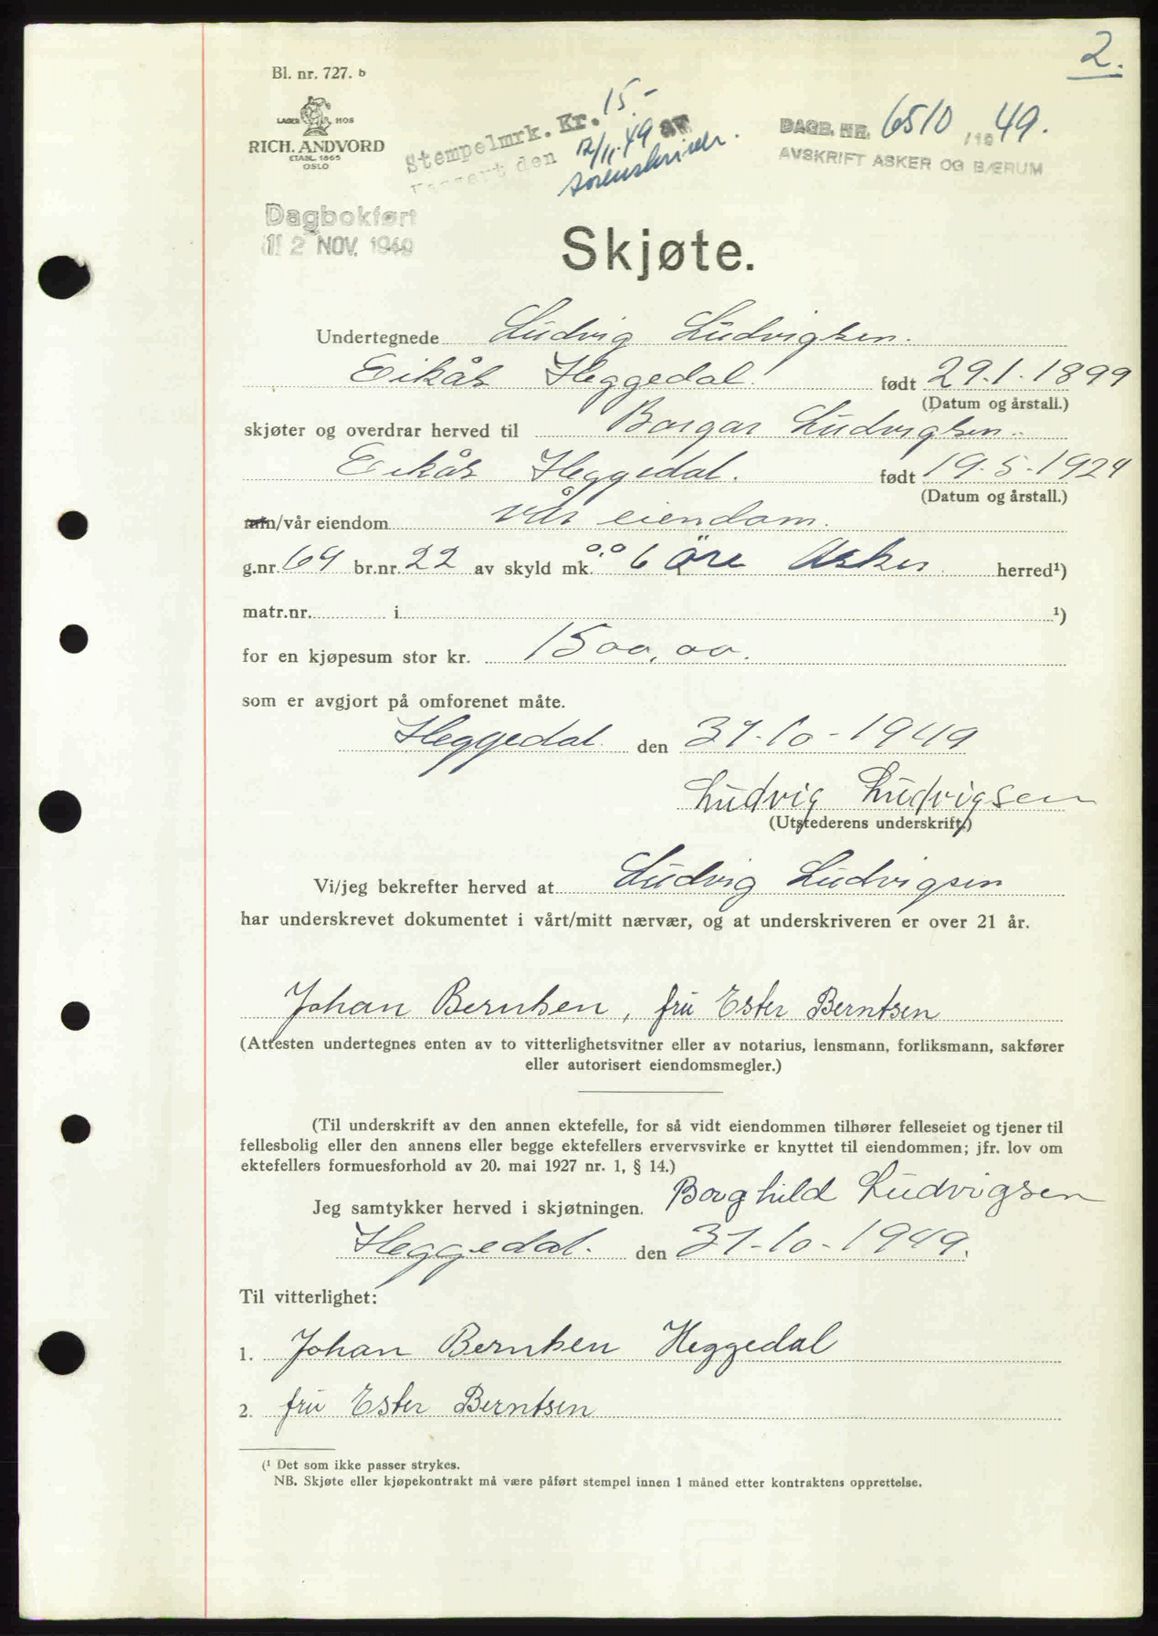 2.
Bl. nr. 727. b
LAGER HOS
RICH. ANDVORD
ETABL. 1865
OSLO
Stempelmrk. Kr. 15.-
kassert den 12/11.49 av
sorenskriver.
DAGB. NR. 6510 /1949.
AVSKRIFT ASKER OG BÆRUM
Dagbokført
12 NOV. 1949
Skjøte.
Undertegnede Ludvig Ludvigsen.
Eikås Heggedal. født 29.1.1899
(Datum og årstall.)
skjøter og overdrar herved til Borgar Ludvigsen.
Eikås Heggedal. født 19.5.1924
(Datum og årstall.)
min/vår eiendom vår eiendom.
g.nr. 69 br.nr. 22 av skyld mk. 0,06 öre Asker herred¹)
matr.nr. i ¹)
for en kjøpesum stor kr. 1500,00.
som er avgjort på omforenet måte.
Heggedal. den 31-10-1949
Ludvig Ludvigsen
(Utstederens underskrift.)
Vi/jeg bekrefter herved at Ludvig Ludvigsen
har underskrevet dokumentet i vårt/mitt nærvær, og at underskriveren er over 21 år.
Johan Berntsen, fru Ester Berntsen
(Attesten undertegnes enten av to vitterlighetsvitner eller av notarius, lensmann, forliksmann, sakfører
eller autorisert eiendomsmegler.)
(Til underskrift av den annen ektefelle, for så vidt eiendommen tilhører felleseiet og tjener til
fellesbolig eller den annens eller begge ektefellers ervervsvirke er knyttet til eiendommen; jfr. lov om
ektefellers formuesforhold av 20. mai 1927 nr. 1, § 14.)
Jeg samtykker herved i skjøtningen. Borghild Ludvigsen
Heggedal. den 31-10-1949.
Til vitterlighet:
1. Johan Berntsen Heggedal
2. fru Ester Berntsen
(¹ Det som ikke passer strykes.
NB. Skjøte eller kjøpekontrakt må være påført stempel innen 1 måned etter kontraktens opprettelse.